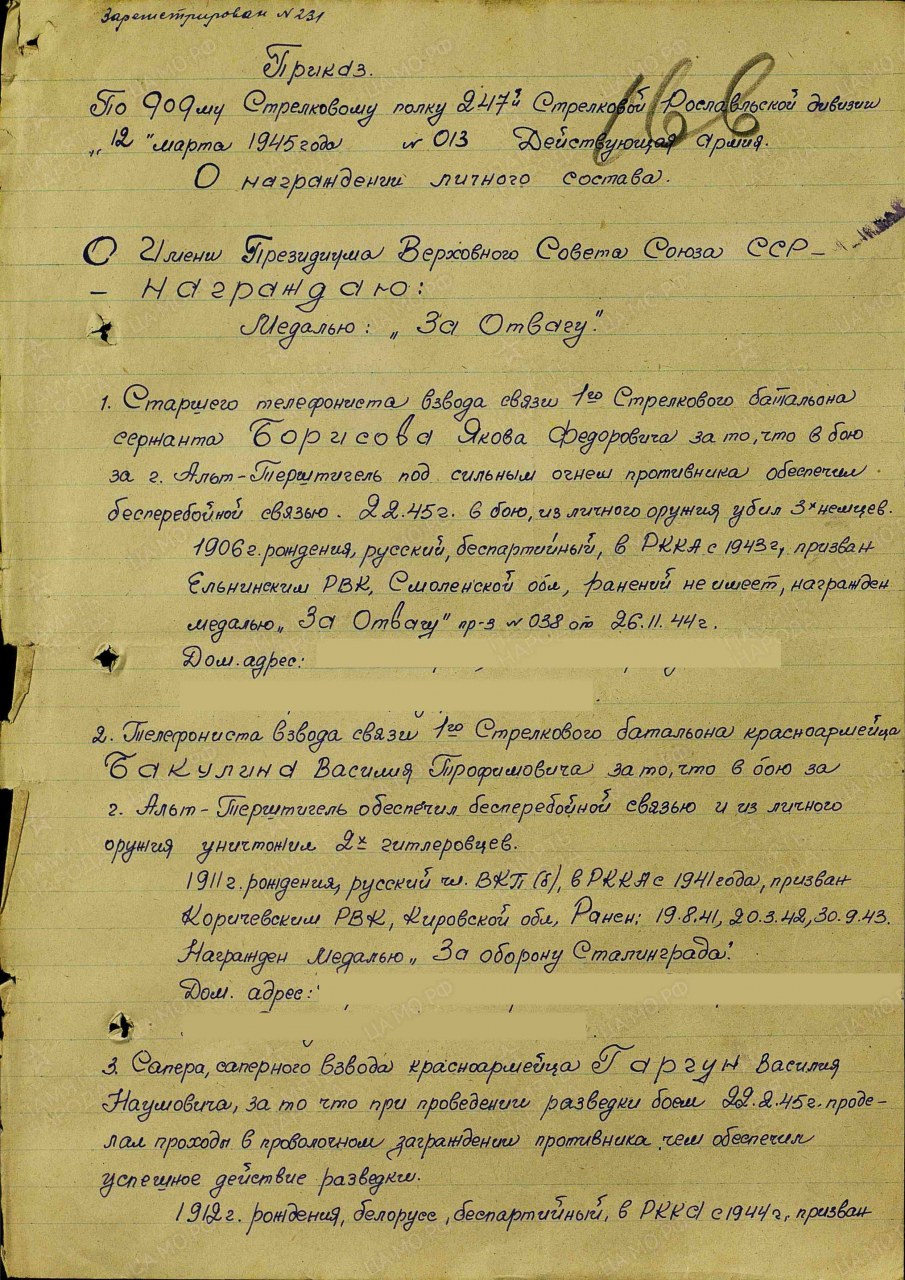 Зарегистрирован №231
Приказ.
По 909му Стрелковому полку 247й Стрелковой Рославльской дивизии
"12" марта 1945 года № 013 Действующая армия.
О награждении личного состава.
166
От Имени Президиума Верховного Совета Союза ССР –
– награждаю:
Медалью: „За Отвагу".
1. Старшего телефониста взвода связи 1го Стрелкового батальона
сержанта Борисова Якова Федоровича за то, что в бою
за г. Альт-Терштигель под сильным огнем противника обеспечил
бесперебойной связью. 2.2.45г. в бою, из личного оружия убил 3х немцев.
1906г. рождения, русский, беспартийный, в РККА с 1943г, призван
Ельнинским РВК, Смоленской обл, ранений не имеет, награжден
медалью „За Отвагу" пр-з № 038 от 26.11.44г.
Дом. адрес:
2. Телефониста взвода связи 1го Стрелкового батальона красноармейца
Бакулина Василия Трофимовича за то, что в бою за
г. Альт-Терштигель обеспечил бесперебойной связью и из личного
оружия уничтожил 2х гитлеровцев.
1911г. рождения, русский чл. ВКП(б), в РККА с 1941 года, призван
Коричевским РВК, Кировской обл, Ранен: 19.8.41, 20.3.42, 30.9.43.
Награжден медалью „За оборону Сталинграда".
Дом. адрес:
3. Сапера, саперного взвода красноармейца Гаргун Василия
Наумовича, за то что при проведении разведки боем 22.2.45г. проде-
лал проходы в проволочном заграждении противника чем обеспечил
успешное действие разведки.
1912г. рождения, белорусс, беспартийный, в РККА с 1944г, призван